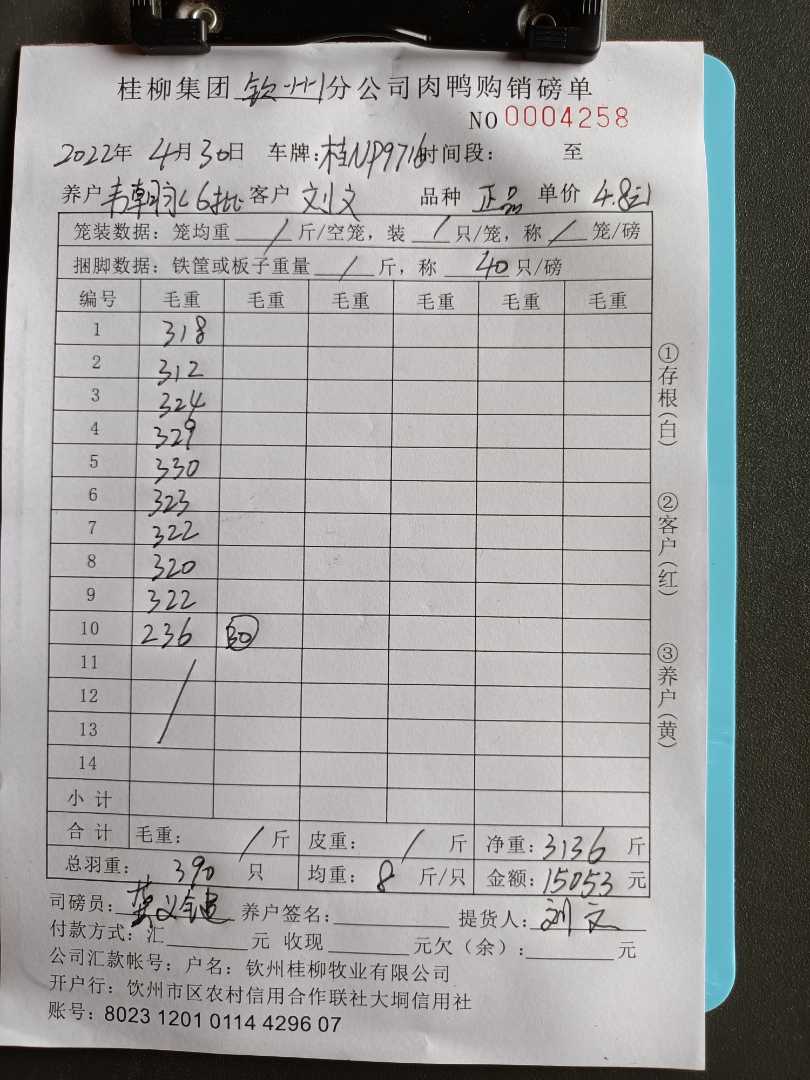 桂柳集团 钦州 分公司肉鸭购销磅单
NO 0004258
2022年 4月30日 车牌:桂NP9716 时间段: 至
养户 韦朝永6批 客户 刘文 品种 正品 单价 4.8元
笼装数据:笼均重 / 斤/空笼,装 / 只/笼,称 / 笼/磅
捆脚数据:铁筐或板子重量 / 斤,称 40 只/磅
编号 毛重 毛重 毛重 毛重 毛重 毛重
1 318
2 312
3 324
4 329
5 330
6 323
7 322
8 320
9 322
10 236 30
11
12 /
13
14
小计
合计 毛重: / 斤 皮重: / 斤 净重: 3136 斤
总羽重: 390 只 均重: 8 斤/只 金额: 15053 元
司磅员: 养户签名: 提货人: 刘文
付款方式:汇 元 收现 元欠(余): 元
公司汇款帐号:户名:钦州桂柳牧业有限公司
开户行:饮州市区农村信用合作联社大垌信用社
账号:8023 1201 0114 4296 07
①存根(白)
②客户(红)
③养户(黄)